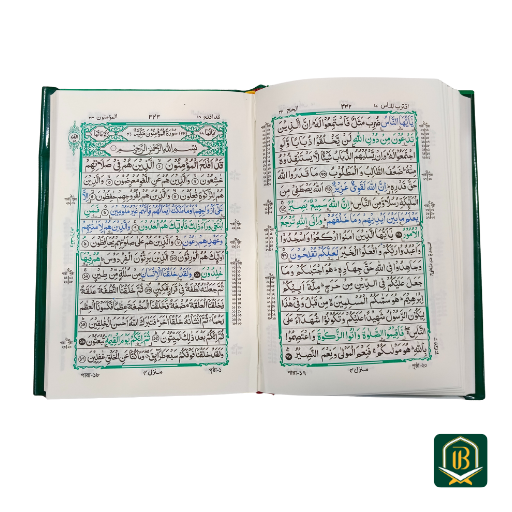 اقترب للناس ١٧ ٣٣٢ الحج ٢٢
يٰۤاَيُّهَا النَّاسُ ضُرِبَ مَثَلٌ فَاسْتَمِعُوْا لَهٗ اِنَّ الَّذِيْنَ
تَدْعُوْنَ مِنْ دُوْنِ اللّٰهِ لَنْ يَّخْلُقُوْا ذُبَابًا وَّلَوِ
اجْتَمَعُوْا لَهٗ وَاِنْ يَّسْلُبْهُمُ الذُّبَابُ شَيْـًٔا لَّا يَسْتَنْقِذُوْهُ
مِنْهُ ضَعُفَ الطَّالِبُ وَالْمَطْلُوْبُ مَا قَدَرُوا اللّٰهَ
حَقَّ قَدْرِهٖ اِنَّ اللّٰهَ لَقَوِيٌّ عَزِيْزٌ اَللّٰهُ يَصْطَفِيْ مِنَ
الْمَلٰٓئِكَةِ رُسُلًا وَّمِنَ النَّاسِ اِنَّ اللّٰهَ سَمِيْعٌۢ بَصِيْرٌ
يَعْلَمُ مَا بَيْنَ اَيْدِيْهِمْ وَمَا خَلْفَهُمْ وَاِلَى اللّٰهِ تُرْجَعُ
الْاُمُوْرُ يٰۤاَيُّهَا الَّذِيْنَ اٰمَنُوا ارْكَعُوْا وَاسْجُدُوْا
وَاعْبُدُوْا رَبَّكُمْ وَافْعَلُوا الْخَيْرَ لَعَلَّكُمْ تُفْلِحُوْنَ
وَجَاهِدُوْا فِي اللّٰهِ حَقَّ جِهَادِهٖ هُوَ اجْتَبٰىكُمْ وَمَا
جَعَلَ عَلَيْكُمْ فِي الدِّيْنِ مِنْ حَرَجٍ مِلَّةَ اَبِيْكُمْ
اِبْرٰهِيْمَ هُوَ سَمّٰىكُمُ الْمُسْلِمِيْنَ مِنْ قَبْلُ وَفِيْ هٰذَا
لِيَكُوْنَ الرَّسُوْلُ شَهِيْدًا عَلَيْكُمْ وَتَكُوْنُوْا شُهَدَآءَ عَلَى
النَّاسِ فَاَقِيْمُوا الصَّلٰوةَ وَاٰتُوا الزَّكٰوةَ وَاعْتَصِمُوْا
بِاللّٰهِ هُوَ مَوْلٰىكُمْ فَنِعْمَ الْمَوْلٰى وَنِعْمَ النَّصِيْرُ
منزل
قد افلح ١٨ ٣٣٣ المؤمنون ٢٣
سورة المؤمنون مكية
بِسْمِ اللّٰهِ الرَّحْمٰنِ الرَّحِيْمِ
قَدْ اَفْلَحَ الْمُؤْمِنُوْنَ الَّذِيْنَ هُمْ فِيْ صَلَاتِهِمْ
خٰشِعُوْنَ وَالَّذِيْنَ هُمْ عَنِ اللَّغْوِ مُعْرِضُوْنَ وَالَّذِيْنَ
هُمْ لِلزَّكٰوةِ فٰعِلُوْنَ وَالَّذِيْنَ هُمْ لِفُرُوْجِهِمْ حٰفِظُوْنَ اِلَّا
عَلٰۤى اَزْوَاجِهِمْ اَوْ مَا مَلَكَتْ اَيْمَانُهُمْ فَاِنَّهُمْ غَيْرُ مَلُوْمِيْنَ فَمَنِ
ابْتَغٰى وَرَآءَ ذٰلِكَ فَاُولٰٓئِكَ هُمُ الْعٰدُوْنَ وَالَّذِيْنَ هُمْ لِاَمٰنٰتِهِمْ
وَعَهْدِهِمْ رٰعُوْنَ وَالَّذِيْنَ هُمْ عَلٰى صَلَوٰتِهِمْ يُحَافِظُوْنَ
اُولٰٓئِكَ هُمُ الْوٰرِثُوْنَ الَّذِيْنَ يَرِثُوْنَ الْفِرْدَوْسَ هُمْ فِيْهَا
خٰلِدُوْنَ وَلَقَدْ خَلَقْنَا الْاِنْسَانَ مِنْ سُلٰلَةٍ مِّنْ طِيْنٍ
ثُمَّ جَعَلْنٰهُ نُطْفَةً فِيْ قَرَارٍ مَّكِيْنٍ ثُمَّ خَلَقْنَا النُّطْفَةَ عَلَقَةً
فَخَلَقْنَا الْعَلَقَةَ مُضْغَةً فَخَلَقْنَا الْمُضْغَةَ عِظٰمًا فَكَسَوْنَا الْعِظٰمَ
لَحْمًا ثُمَّ اَنْشَاْنٰهُ خَلْقًا اٰخَرَ فَتَبٰرَكَ اللّٰهُ اَحْسَنُ الْخٰلِقِيْنَ
ثُمَّ اِنَّكُمْ بَعْدَ ذٰلِكَ لَمَيِّتُوْنَ ثُمَّ اِنَّكُمْ يَوْمَ الْقِيٰمَةِ تُبْعَثُوْنَ
وَلَقَدْ خَلَقْنَا فَوْقَكُمْ سَبْعَ طَرَآئِقَ وَمَا كُنَّا عَنِ الْخَلْقِ غٰفِلِيْنَ
منزل